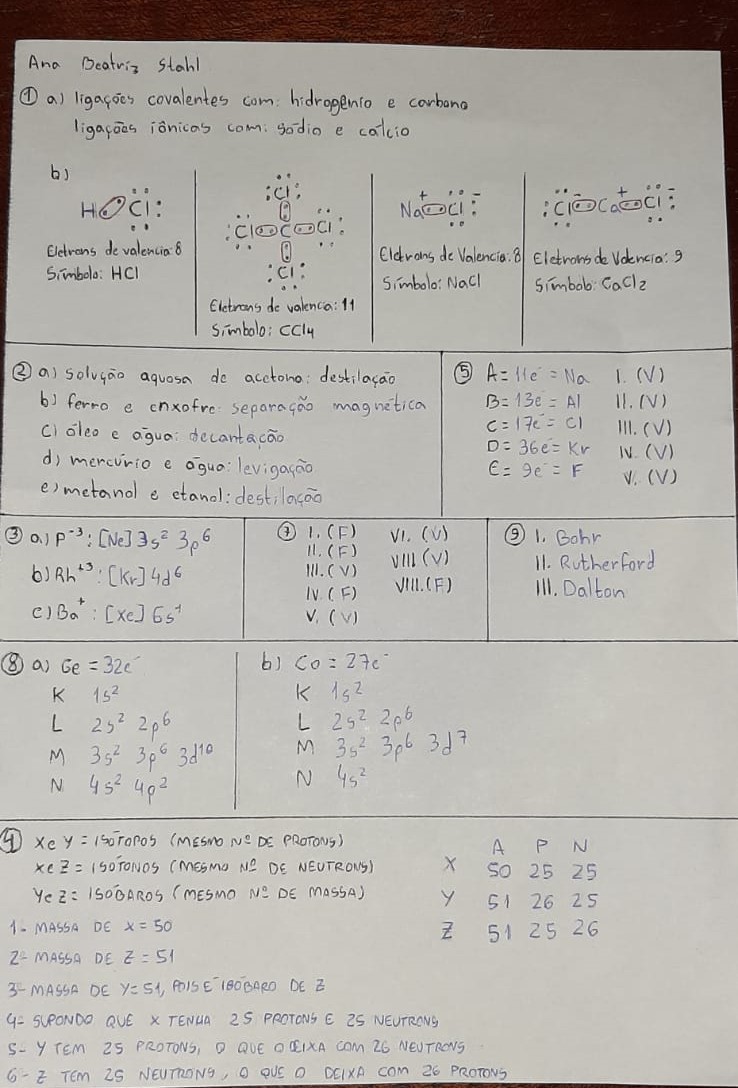 Ana Beatriz Stahl
① a) ligações covalentes com: hidrogênio e carbono
ligações iônicas com: sódio e cálcio
b)
H Cl:
Eletrons de valencia: 8
Símbolo: HCl
:Cl:
:Cl C Cl:
:Cl:
Eletrons de valencia: 11
Símbolo: CCl4
Na+ Cl:-
Eletrons de Valencia: 8
Símbolo: NaCl
:Cl- Ca+ Cl:-
Eletrons de Valencia: 9
Símbolo: CaCl2
② a) solução aquosa de acetona: destilação
b) ferro e enxofre: separação magnética
c) óleo e água: decantação
d) mercúrio e água: levigação
e) metanol e etanol: destilação
⑤ A = 11e- = Na I. (V)
B = 13e- = Al II. (V)
C = 17e- = Cl III. (V)
D = 36e- = Kr IV. (V)
E = 9e- = F V. (V)
③ a) P-3: [Ne] 3s2 3p6
b) Rh+3: [Kr] 4d6
c) Ba+: [Xe] 6s1
⑦ I. (F) VI. (V)
II. (F) VIII (V)
III. (V) VIII. (F)
IV. (F)
V. (V)
⑨ I. Bohr
II. Rutherford
III. Dalton
⑧ a) Ge = 32e-
K 1s2
L 2s2 2p6
M 3s2 3p6 3d10
N 4s2 4p2
b) Co = 27e-
K 1s2
L 2s2 2p6
M 3s2 3p6 3d7
N 4s2
④ X e Y = ISÓTOPOS (MESMO Nº DE PROTONS)
X e Z = ISÓTONOS (MESMO Nº DE NEUTRONS)
Y e Z = ISÓBAROS (MESMO Nº DE MASSA)
1- MASSA DE X = 50
2- MASSA DE Z = 51
3- MASSA DE Y = 51, POIS E ISÓBARO DE Z
4- SUPONDO QUE X TENHA 25 PROTONS E 25 NEUTRONS
5- Y TEM 25 PROTONS, O QUE O DEIXA COM 26 NEUTRONS
6- Z TEM 25 NEUTRONS, O QUE O DEIXA COM 26 PROTONS
A P N
X 50 25 25
Y 51 26 25
Z 51 25 26